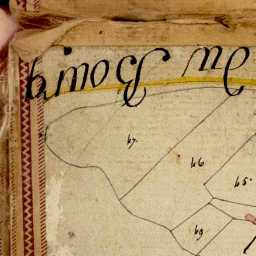 Du Bourg
67.
66
65.
69